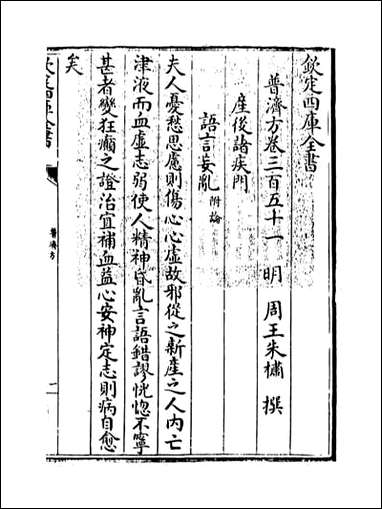 欽定四庫全書
普濟方卷三百五十一 明 周王朱橚 撰
産後諸疾門
語言妄亂 附論
夫人憂愁思慮則傷心心虚故邪從之新産之人内亡
津液而血虚志弱使人精神昏亂言語錯謬恍惚不寧
甚者變狂癲之證治宜補血益心安神定志則病自愈
矣
欽定四庫全書
普濟方
一